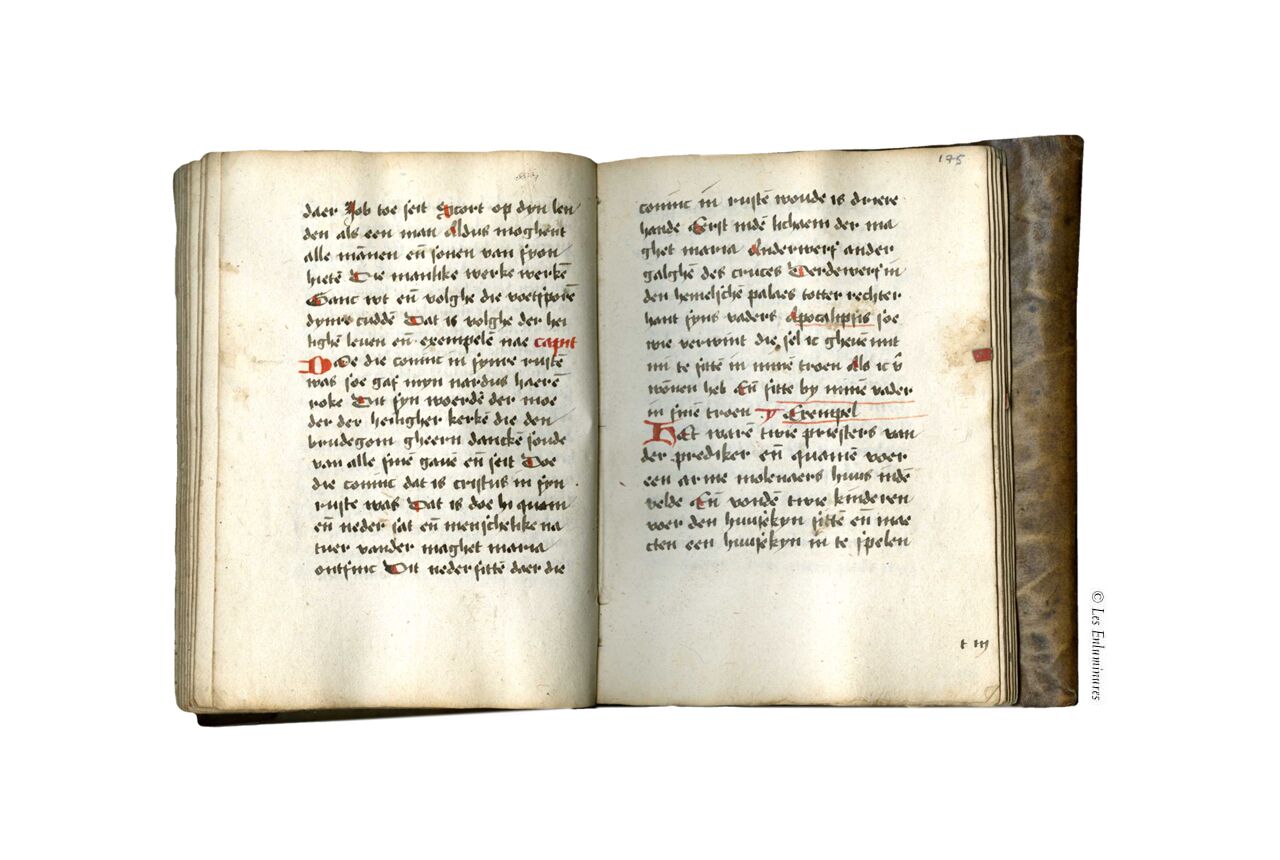 daer Job toe seit Scort op dyn len
den als een man Aldus moghent
alle mānen en̄ sonen van syon
hietē Die manlike werke werkē
Ganc wt en̄ volghe die voetsporē
dynre cuddē Dat is volghe der hei
lighē leuen en̄ exempelē nae capit
Doe die coninc in synre rustē
was soe gaf myn nardus haerē
roke Dit syn woerdē der moe
der der heiligher kerkē die den
brudegom gheern danckē soude
van alle sinē gauē en̄ seit Doe
die coninc dat is cristus in syn
rustē was Dat is doe hi quam
en̄ neder sat en̄ menschelike na
tuer vander maghet maria
ontfinc Dit neder sittē daer die
175
coninc in rustē woude is drierē
hande Eerst indē lichaem der ma
ghet maria Anderwerf ander
galghē des cruces Derdewerf in
den hemelschē palaes totter rechter
hant syns vaders Apocalipsis soe
wie verwint die sel ic gheuē mit
mi te sittē in minē troen Als ic v̄
wōnen heb En̄ sitte by minē vader
in sinē troen Exempel
Het warē twie priesters van
der prediker en̄ quamē voer
een arme molenaers huus indē
velde En̄ vondē twie kinderen
voer den huusekyn sittē en̄ mae
cten een huusekyn in te spelen
t iij
© Les Enluminures